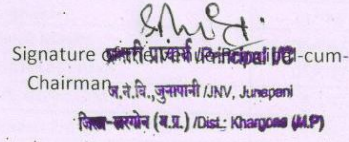 Signature प्रभारी प्राचार्य / Principal I/C-cum-
Chairman
ज.न.वि.,जुनापानी /JNV, Junapani
जिला-खरगोन (म.प्र.) /Dist.: Khargone (M.P)